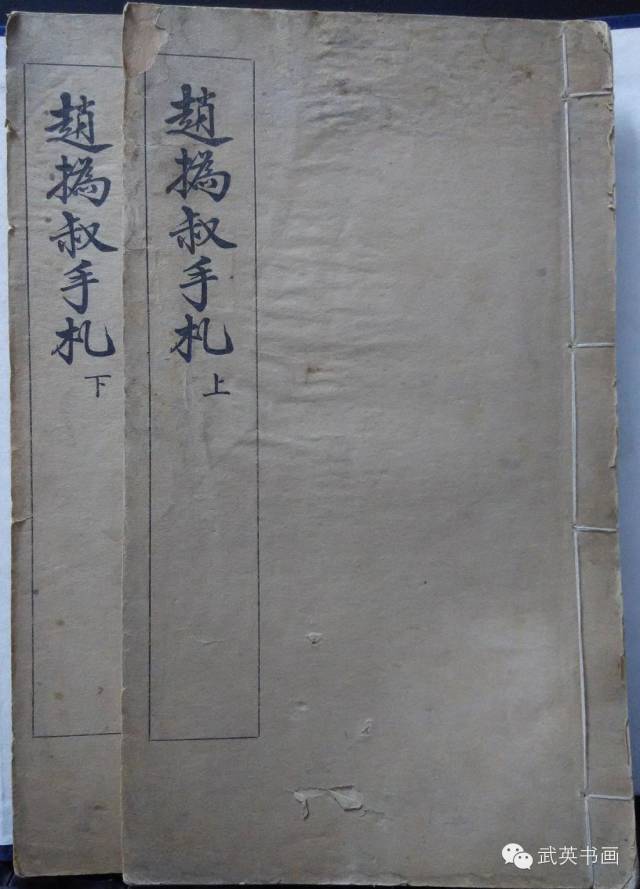 趙撝叔手札
上
趙撝叔手札
下
武英书画